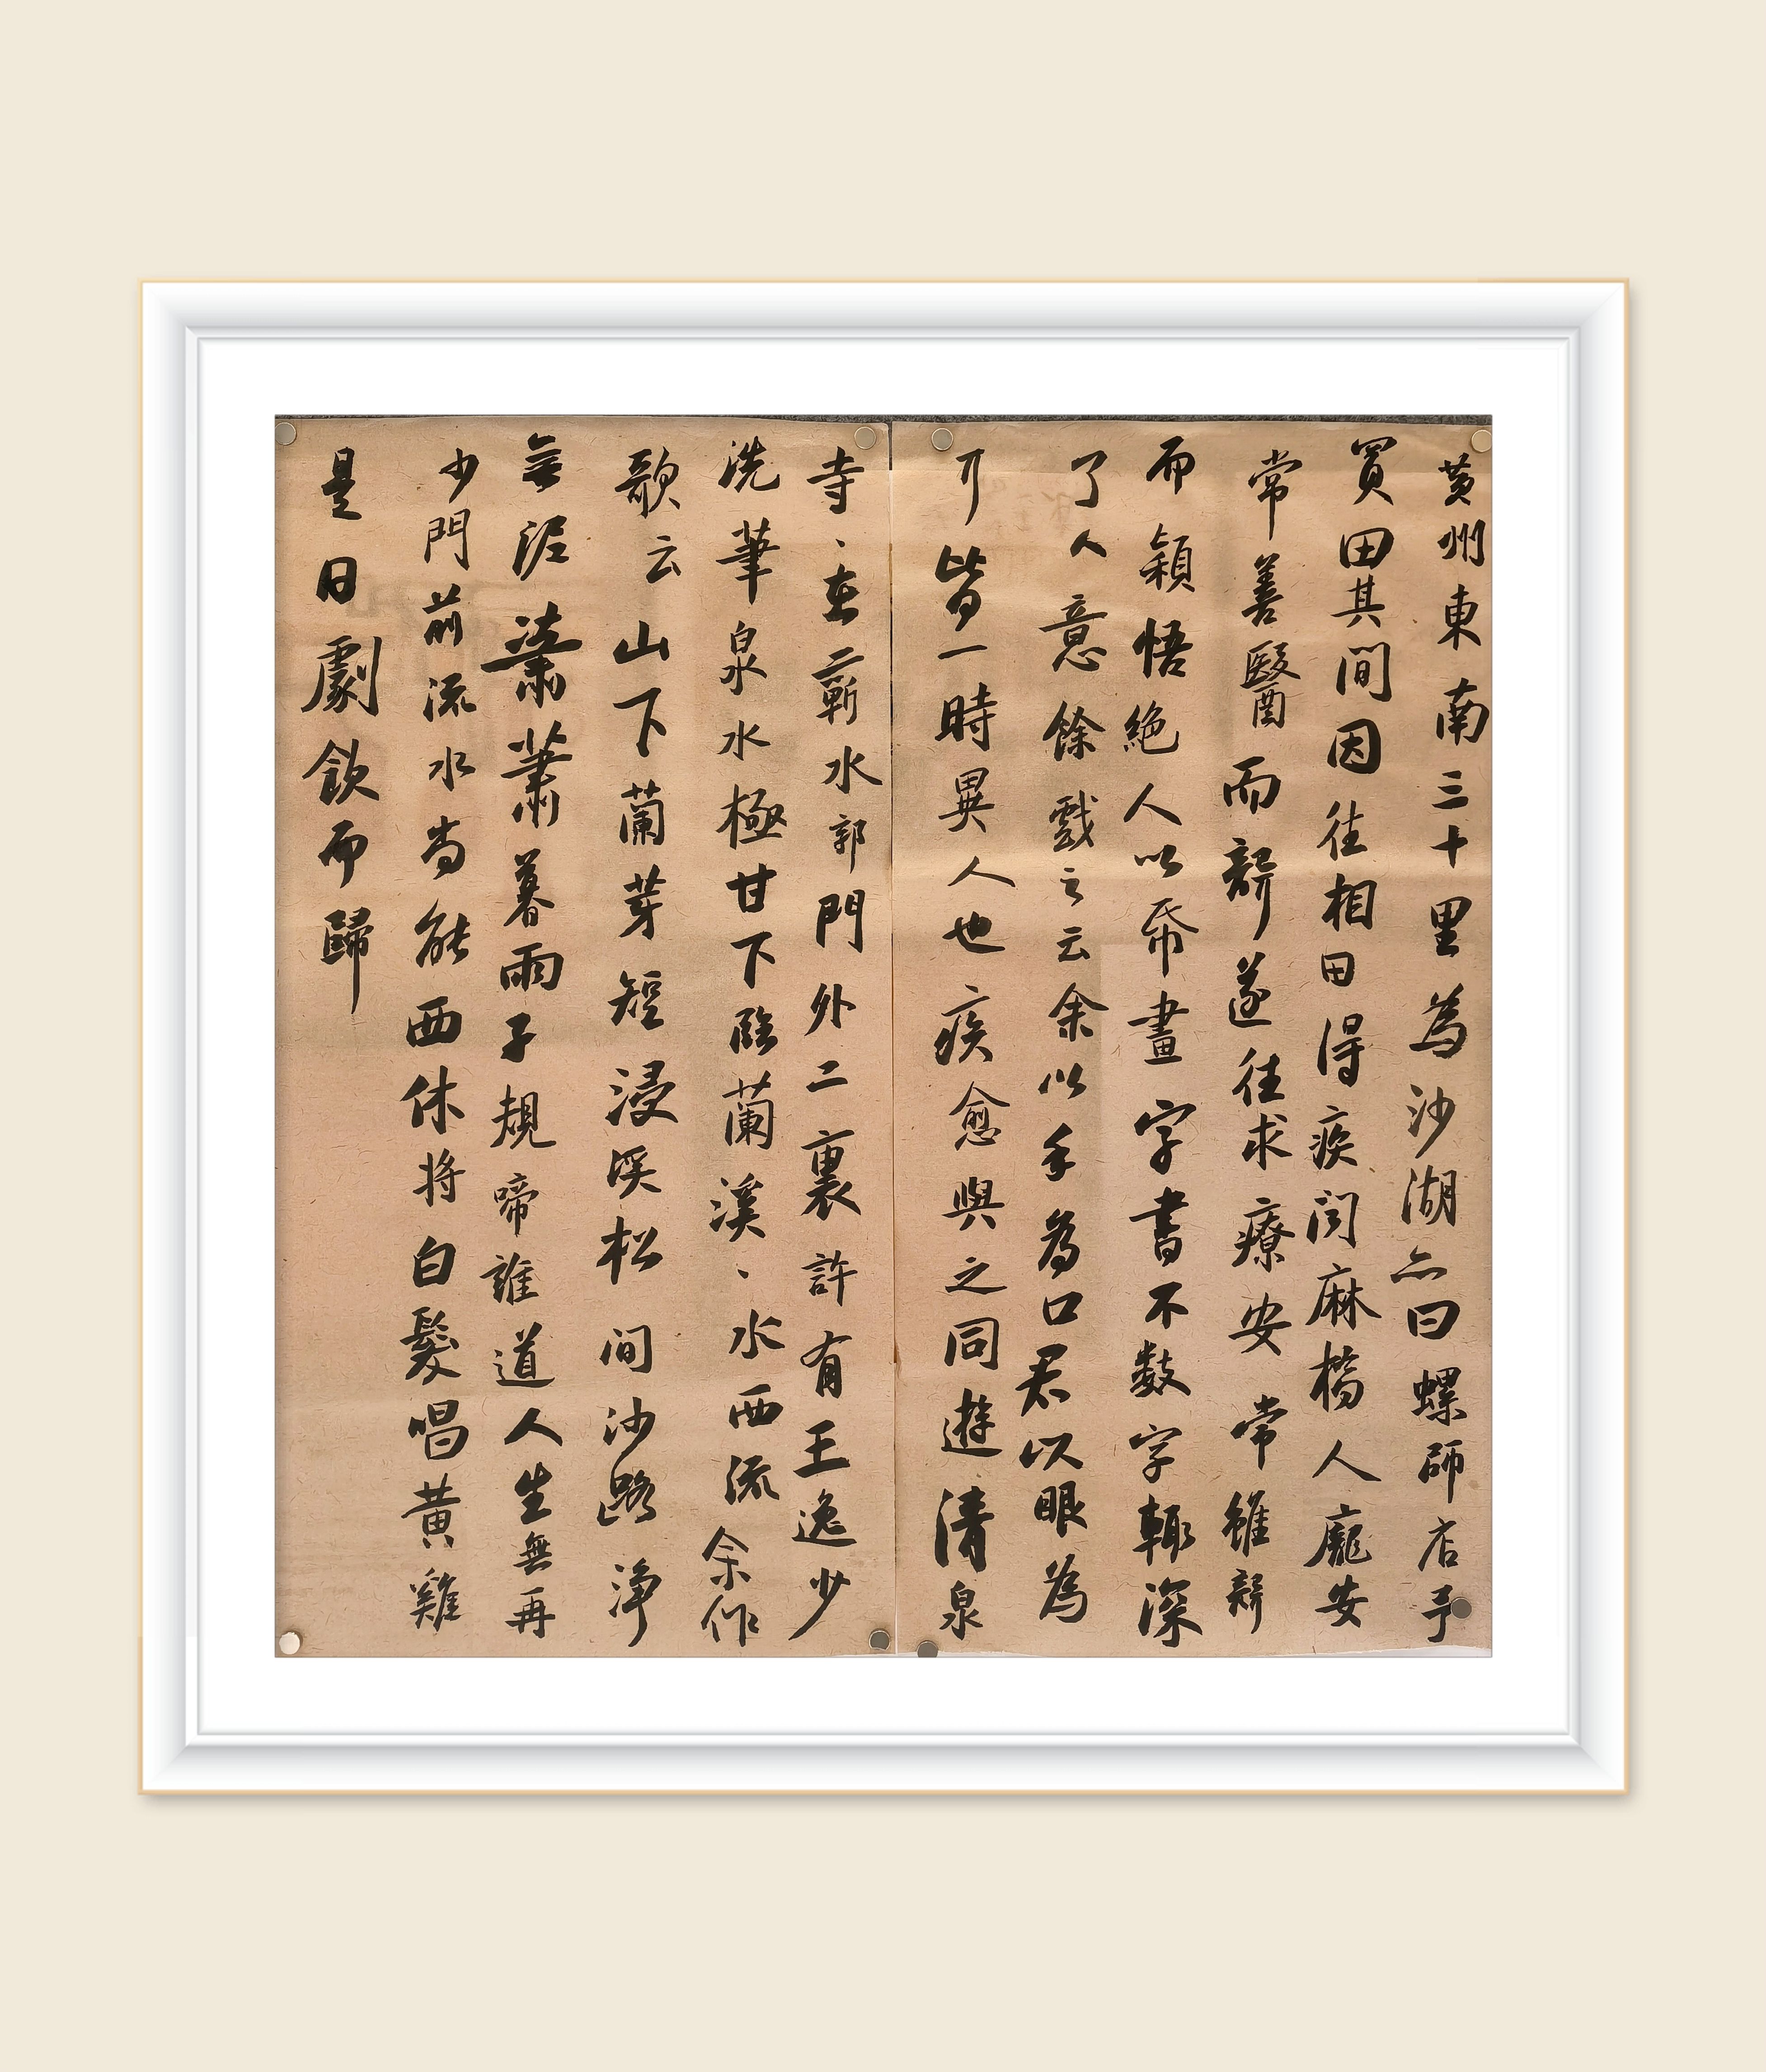 黄州東南三十里為沙湖亦曰螺師店予
買田其間因往相田得疾聞麻橋人龐安
常善醫而聾遂往求療安常雖聾
而穎悟絕人以紙畫字書不數字輒深
了人意余戲之云余以手為口君以眼為
耳皆一時異人也疾愈與之同遊清泉
寺、在蘄水郭門外二裏許有王逸少
洗筆泉水極甘下臨蘭溪、水西流余作
歌云山下蘭芽短浸溪松間沙路淨
無泥蕭蕭暮雨子規啼誰道人生無再
少門前流水尚能西休將白髮唱黃雞
是日劇飲而歸